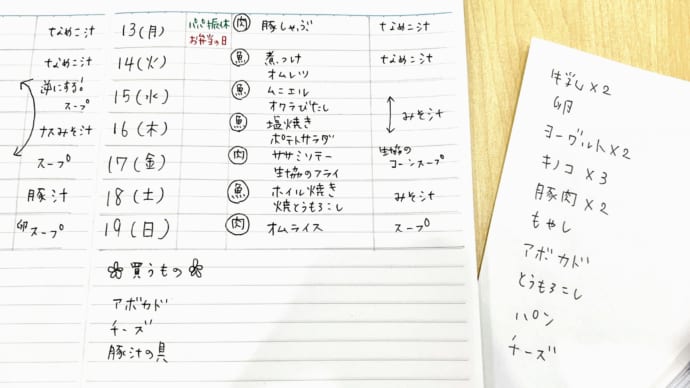 なめこ汁
なめこ汁
逆にする!
スープ
ナスみそ汁
スープ
豚汁
卵スープ
13(月) パパ振休 肉 豚しゃぶ なめこ汁
お弁当の日
14(火) 魚 煮つけ なめこ汁
オムレツ
15(水) 魚 ムニエル
オクラびたし
みそ汁
16(木) 魚 塩焼き
ポテトサラダ
17(金) 肉 ササミソテー 生協の
生協のフライ コーンスープ
18(土) 魚 ホイル焼き みそ汁
焼とうもろこし
19(日) 肉 オムライス スープ
買うもの
アボカド
チーズ
豚汁の具
牛乳×2
卵
ヨーグルト×2
キノコ×3
豚肉×2
もやし
アボカド
とうもろこし
パン
チーズ